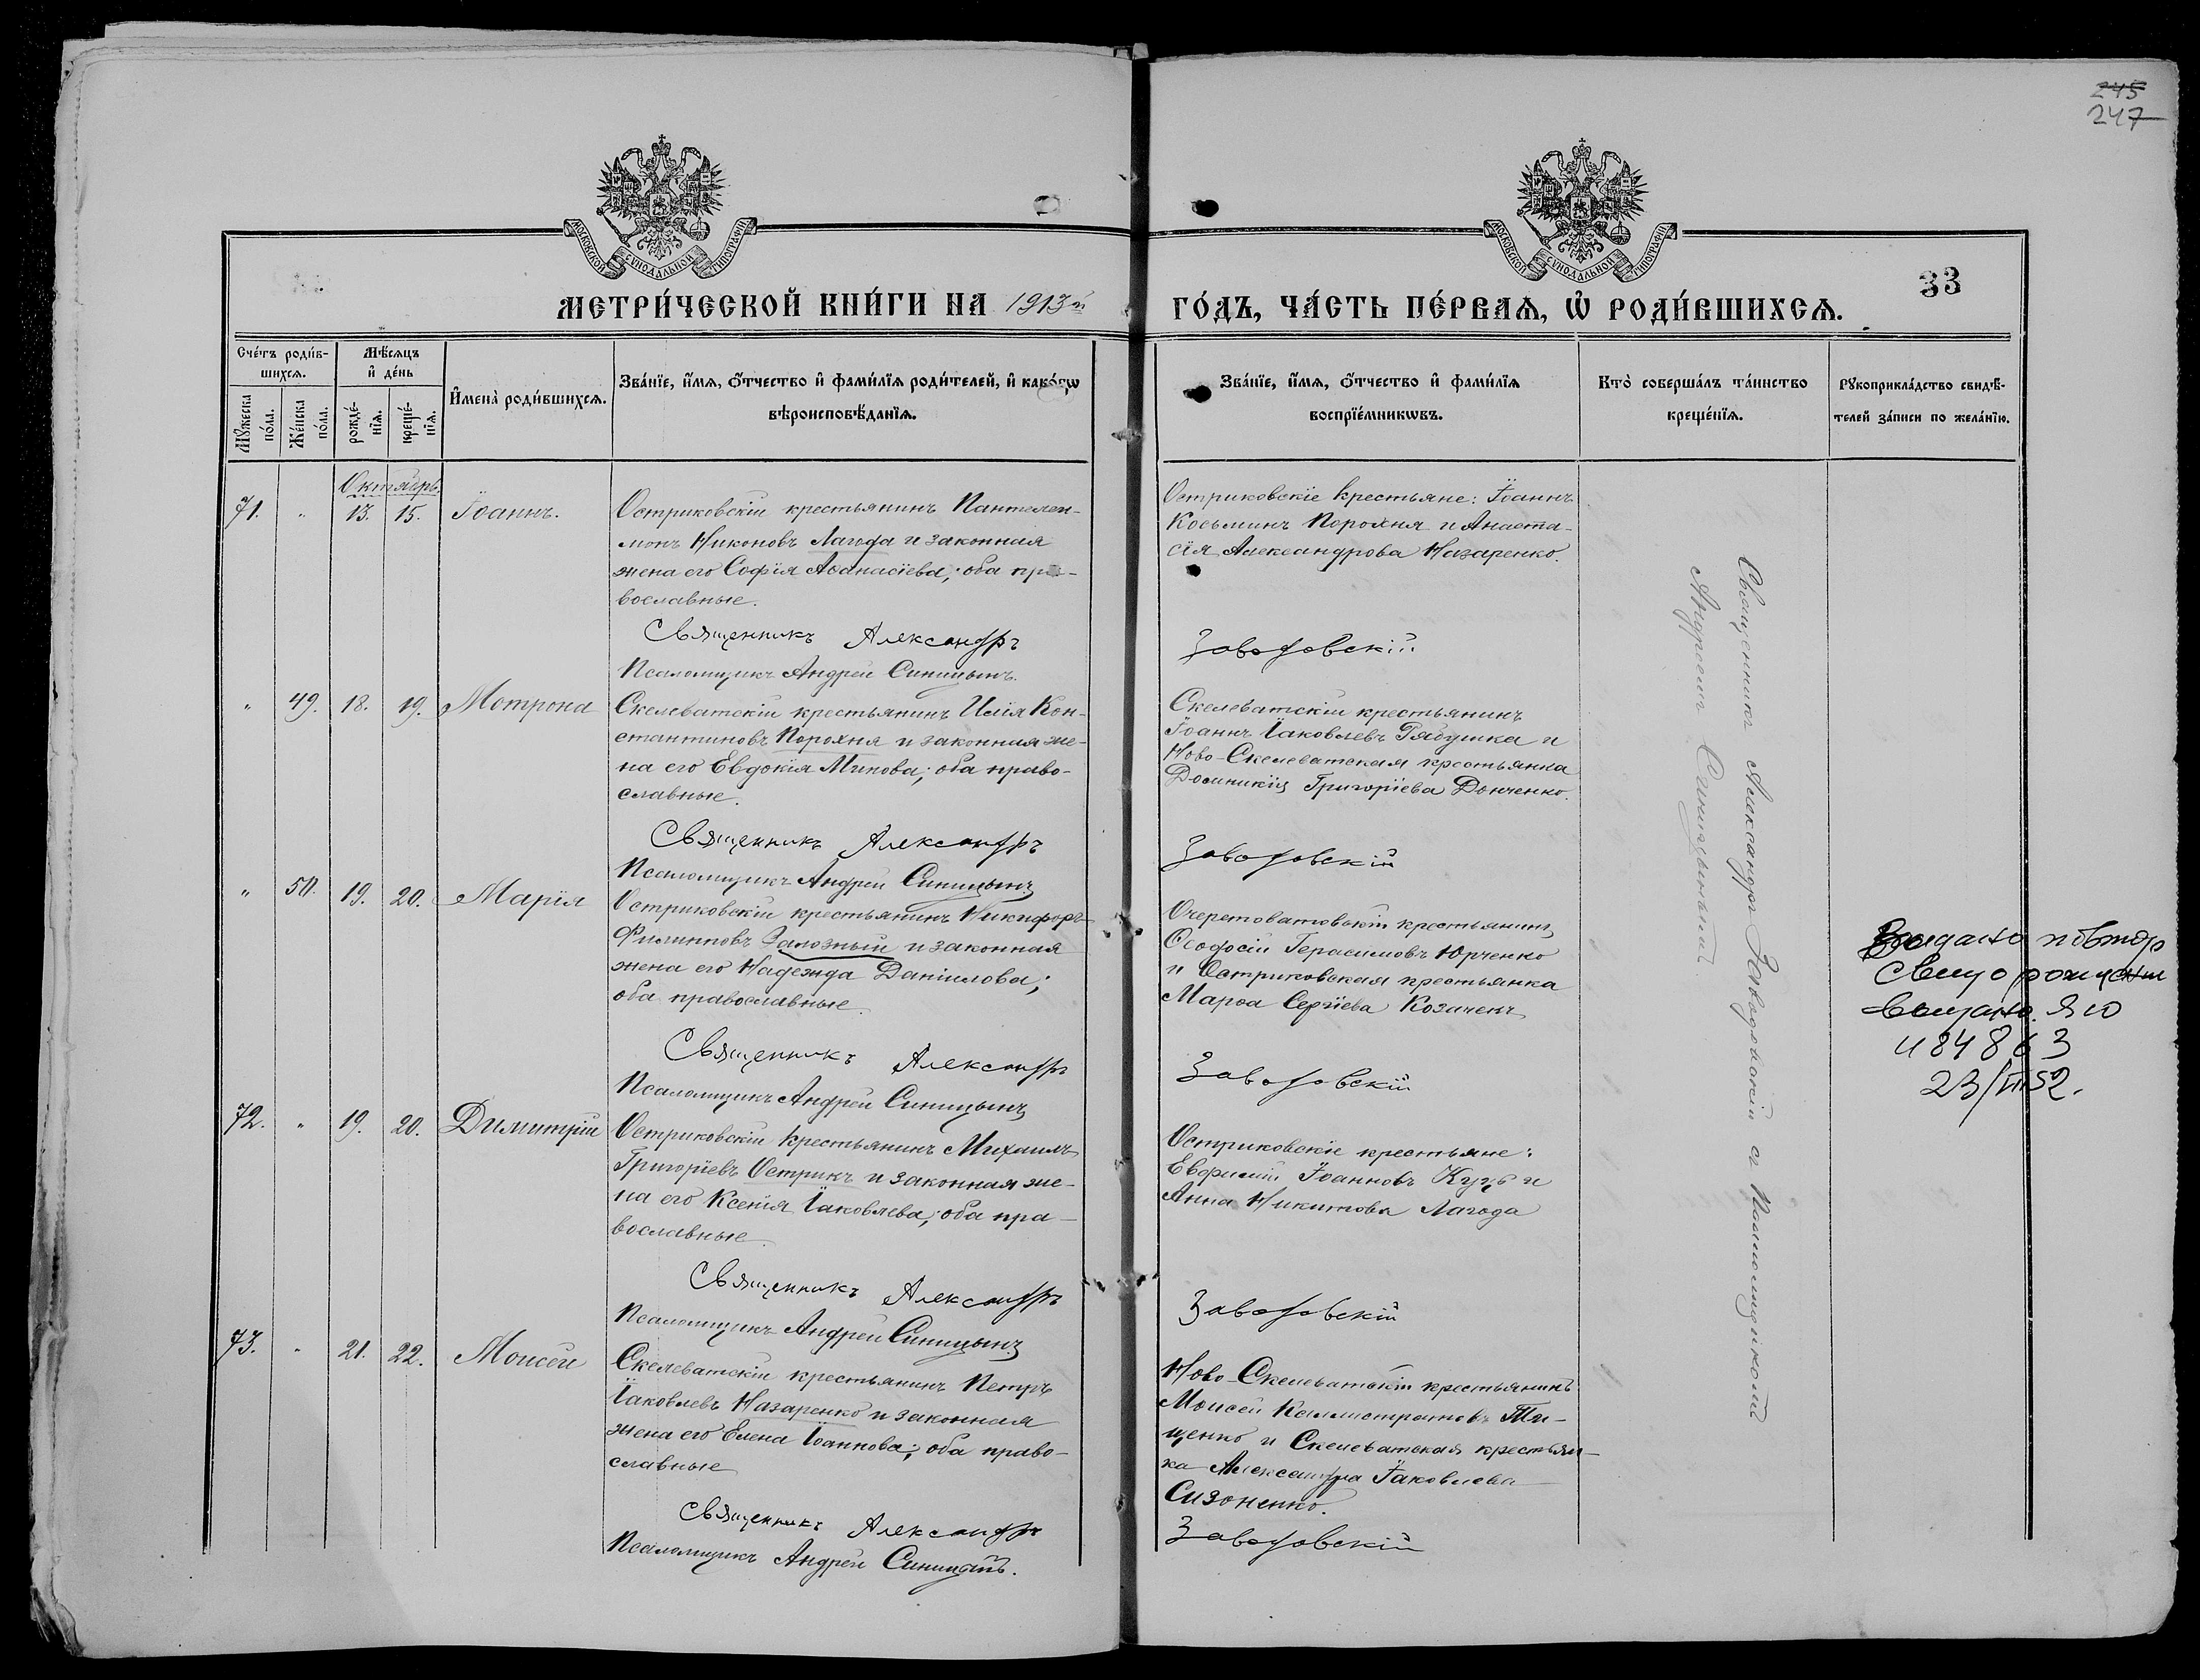 245
247
МОСКОВСКОЙ СУНОДАЛЬНОЙ ТИПОГРАФІИ
МОСКОВСКОЙ СУНОДАЛЬНОЙ ТИПОГРАФІИ
33
МЕТРИ́ЧЕСКОЙ КНИ́ГИ НА 1913й
ГО́ДЪ, ЧА́СТЬ ПЕ́РВАѦ, Ѡ҆ РОДИ́ВШИХСѦ.
Сче́тъ роди́в-
шихсѧ.
Мꙋ́жеска по́ла.
Же́нска по́ла.
Мѣ́сѧцъ
и҆ де́нь
рожде́-
нїѧ.
креще́-
нїѧ.
И҆мена̀ роди́вшихсѧ.
Зва́нїе, и҆́мѧ, ѻ҆́тчество и҆ фами́лїѧ роди́телей, и҆ како́гѡ
вѣроисповѣ́данїѧ.
Зва́нїе, и҆́мѧ, ѻ҆́тчество и҆ фами́лїѧ
воспрїе́мникѡвъ.
Кто̀ соверша́лъ та́инство
креще́нїѧ.
Рꙋкоприкла́дство свидѣ́-
телей за́писи по жела́нїю.
Октябрь.
71. " 13. 15. Іоаннъ.
Остриковскій крестьянинъ Пантелей-
монъ Никоновъ Лагода и законная
жена его Софія Аѳанасіева; оба пра-
вославные.
Священникъ Александръ
Псаломщикъ Андрей Синицынъ.
Остриковскіе крестьяне: Іоаннъ
Косьминъ Порохня и Анаста-
сія Александрова Назаренко.
Заводовскій
" 49. 18. 19. Мотрона
Скелеватскій крестьянинъ Илія Кон-
стантиновъ Порохня и законная же-
на его Евдокія Минова; оба право-
славные.
Священникъ Александръ
Псаломщикъ Андрей Синицынъ
Скелеватскій крестьянинъ
Іоаннъ Іаковлевъ Рябушка и
Ново-Скелеватская крестьянка
Доминикія Григоріева Донченко.
Заводовскій
" 50. 19. 20. Марія
Остриковскій крестьянинъ Никифоръ
Филипповъ Залозный и законная
жена его Надежда Даніилова;
оба православные.
Священникъ Александръ
Псаломщикъ Андрей Синицынъ
Очеретоватовскій крестьянинъ
Ѳеодосій Герасимовъ Юрченко
и Остриковская крестьянка
Марѳа Сергіева Козаченъ
Заводовскій
72. " 19. 20. Димитрій
Остриковскій крестьянинъ Михаилъ
Григоріевъ Острикъ и законная же-
на его Ксенія Іаковлева; оба пра-
вославные.
Священникъ Александръ
Псаломщикъ Андрей Синицынъ
Остриковскіе крестьяне:
Евѳимій Іоанновъ Куцъ и
Анна Никитова Лагода
Заводовскій
73. " 21. 22. Моисей
Скелеватскій крестьянинъ Петръ
Іаковлевъ Назаренко и законная
жена его Елена Іоаннова; оба право-
славные
Священникъ Александръ
Псаломщикъ Андрей Синицынъ.
Ново-Скелеватскій крестьянинъ
Моисей Каллистратовъ Ти-
щенко и Скелеватская крестьян-
ка Александра Іаковлева
Сизоненко.
Заводовскій
Священникъ Александръ Заводовскій съ Псаломщикомъ
Андреемъ Синицынымъ
Выдано повтор
свид о рожден
выдано. ЯЮ
484863
23/III 52.